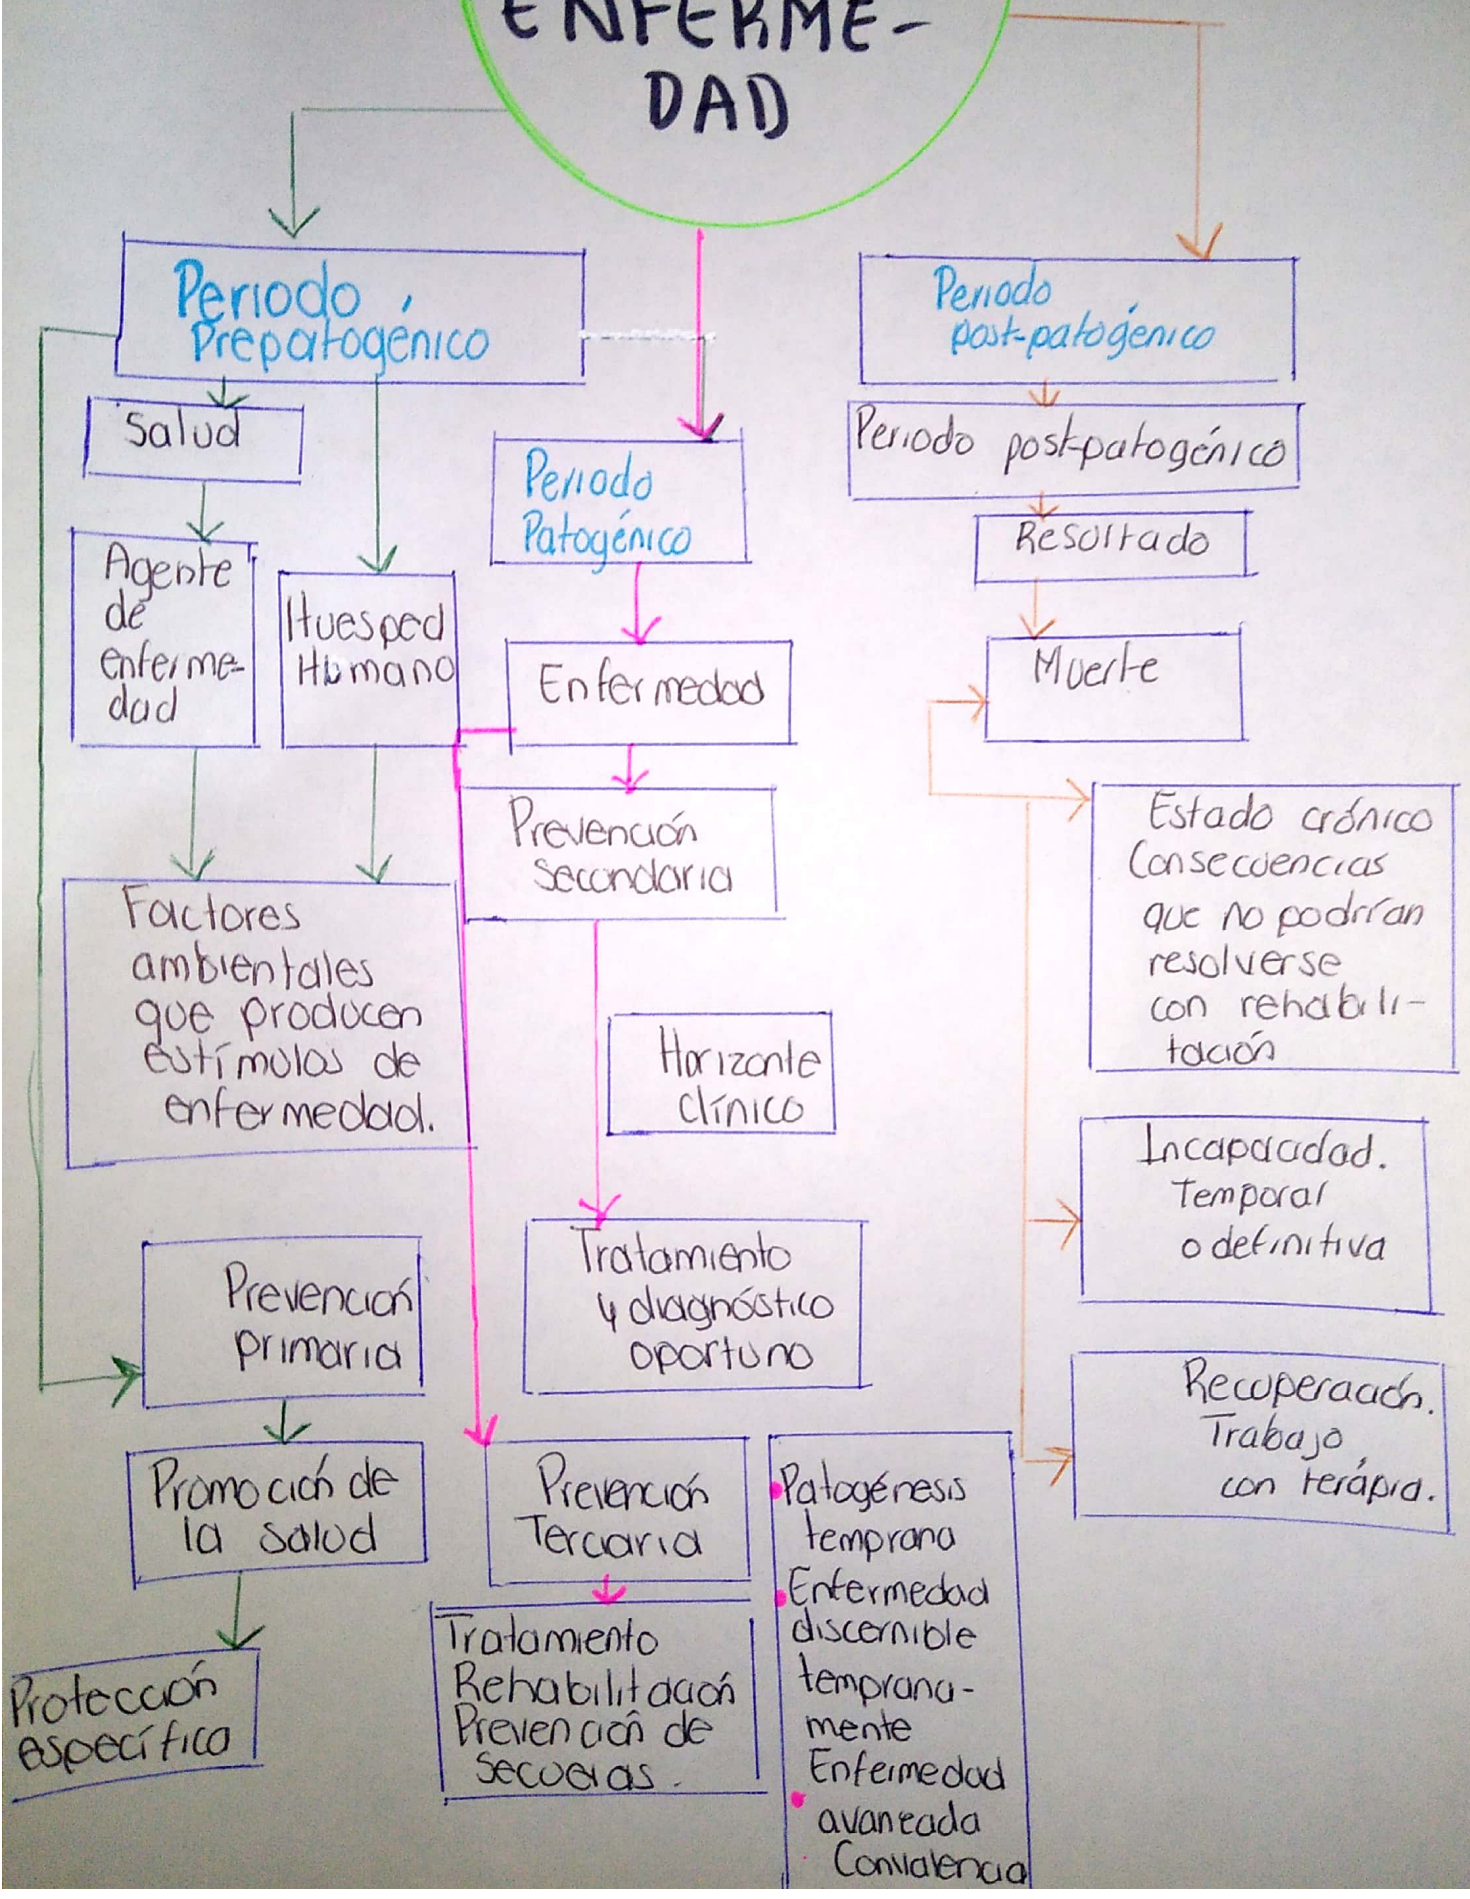 ENFERME-
DAD
Periodo
Prepatogénico
Salud
Agente
de
enferme-
dad
Huesped
Humano
Factores
ambientales
que producen
estímulos de
enfermedad.
Prevención
primaria
Promoción de
la salud
Protección
específica
Periodo
Patogénico
Enfermedad
Prevención
Secundaria
Horizonte
clínico
Tratamiento
y diagnóstico
oportuno
Prevención
Terciaria
Tratamiento
Rehabilitación
Prevención de
secuelas.
Patogénesis
temprana
Enfermedad
discernible
temprana-
mente
Enfermedad
avanzada
Convalencia
Periodo
post-patogénico
Periodo post-patogénico
Resultado
Muerte
Estado crónico
Consecuencias
que no podrían
resolverse
con rehabili-
tación
Incapacidad.
Temporal
o definitiva
Recuperación.
Trabajo
con terápia.